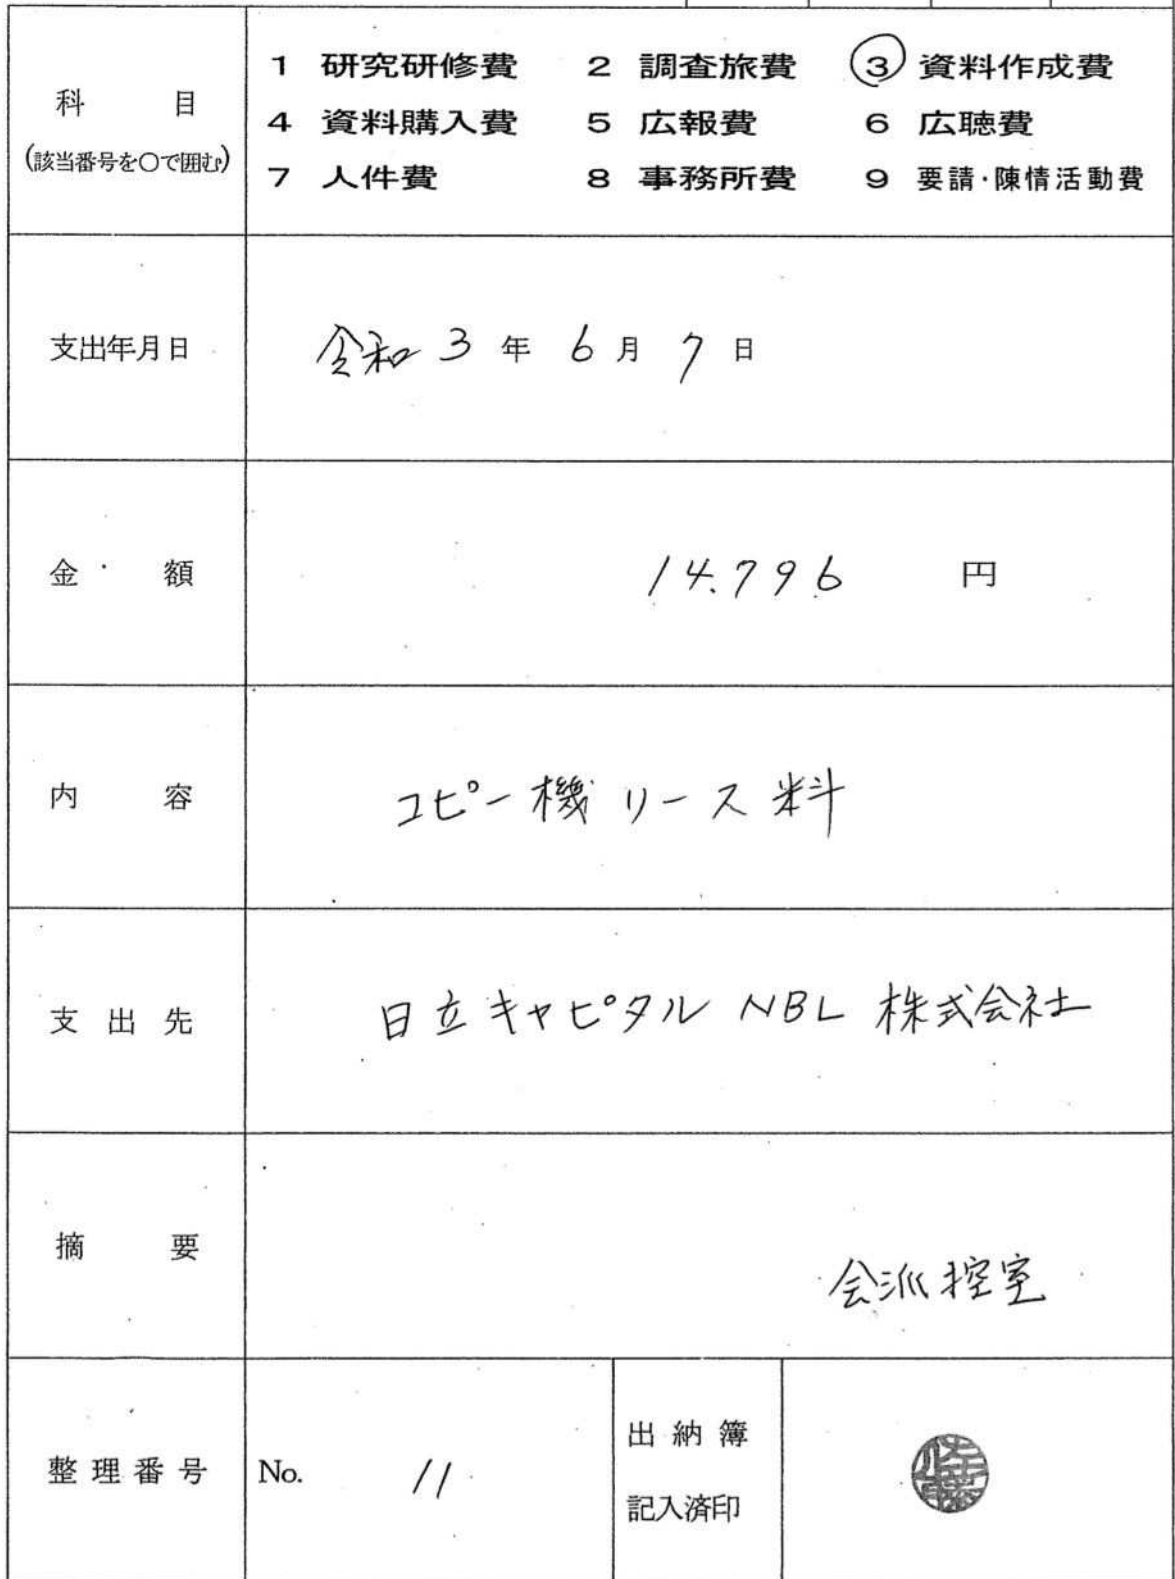 科目
(該当番号を〇で囲む)
1 研究研修費 2 調査旅費 3 資料作成費
4 資料購入費 5 広報費 6 広聴費
7 人件費 8 事務所費 9 要請・陳情活動費
支出年月日 令和 3 年 6 月 7 日
金額 14.796 円
内容 コピー機リース料
支出先 日立キャピタル NBL 株式会社
摘要 会派控室
整理番号 No. 11
出納簿
記入済印
佐藤